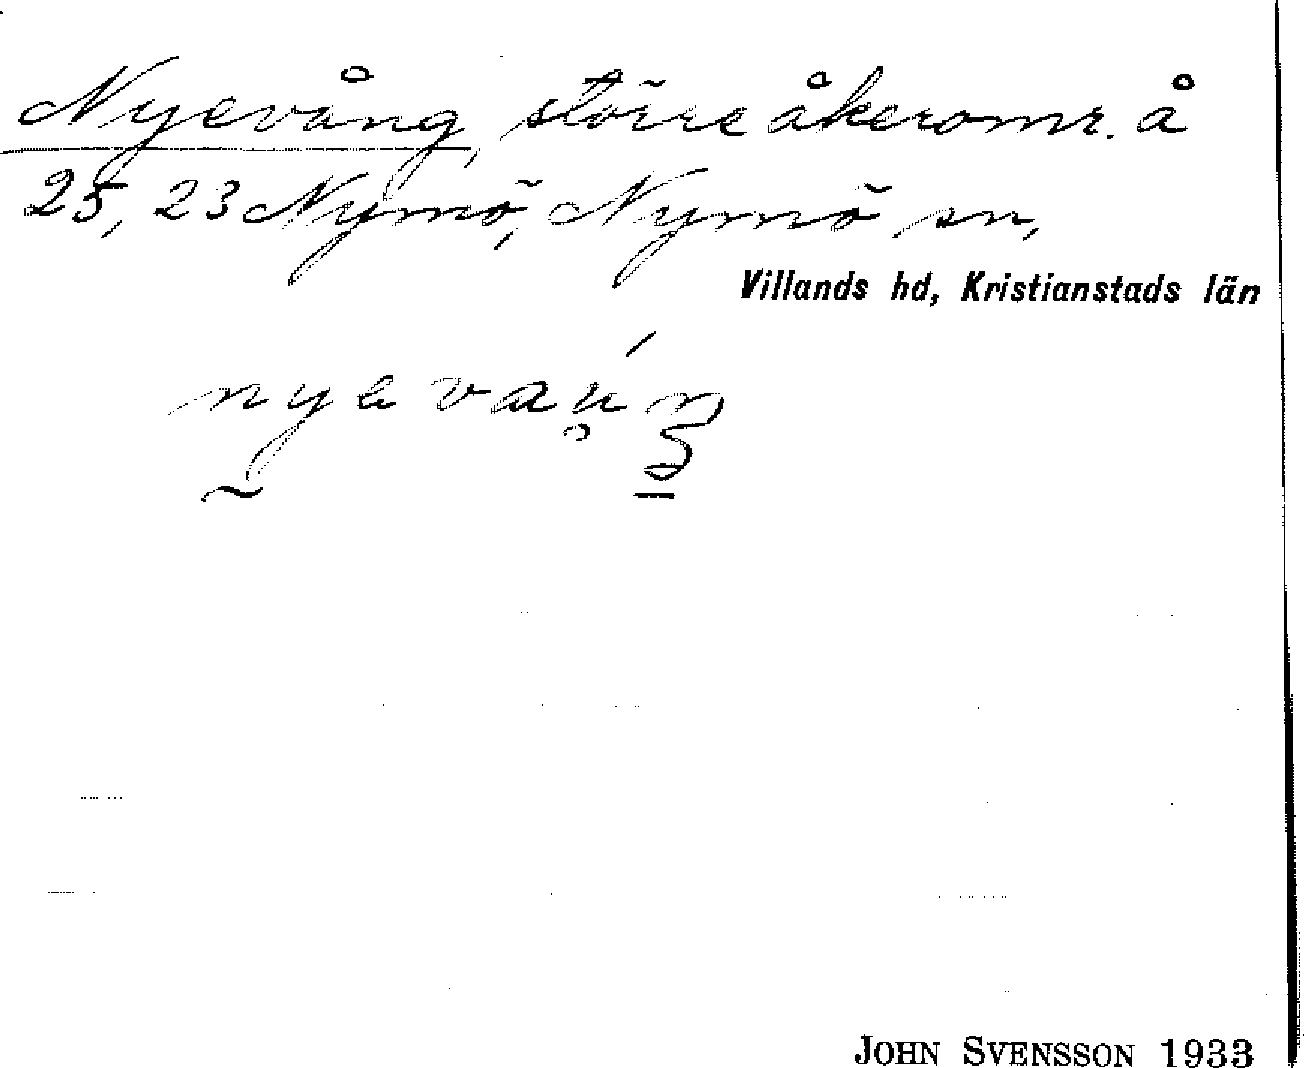 Nyevång, större åkeromr. å
25, 23 Nymö, Nymö sn,
Villands hd, Kristianstads län
JOHN SVENSSON 1933